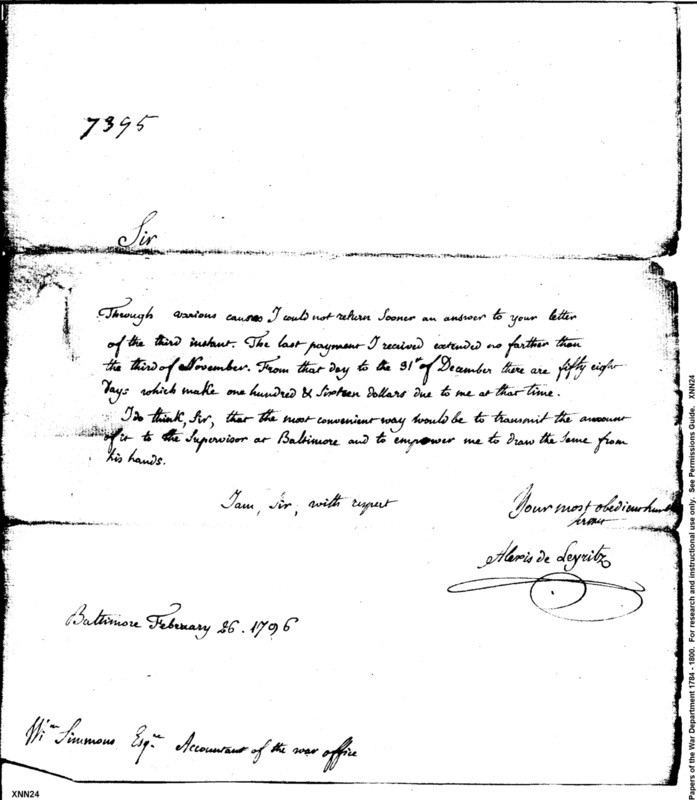 7395
Sir
Through various causes I could not return sooner an answer to your letter
of the third instant. The last payment I received extended no farther than
the third of November. From that day to the 31st of December there are fifty eight
Days which make one hundred & sixteen dollars due to me at that time.
I do think, Sir, that the most convenient way would be to transmit the amount
of it to the Supervisor at Baltimore and to empower me to draw the same from
his hands.
I am, Sir, with respect
Your most obedient
Alexis de Leyritz
Baltimore February 26. 1796
Wm Simmons Esqre Accountant of the war office
XNN24
Papers of the War Department 1784 - 1800. For research and instructional use only. See Permissions Guide. XNN24